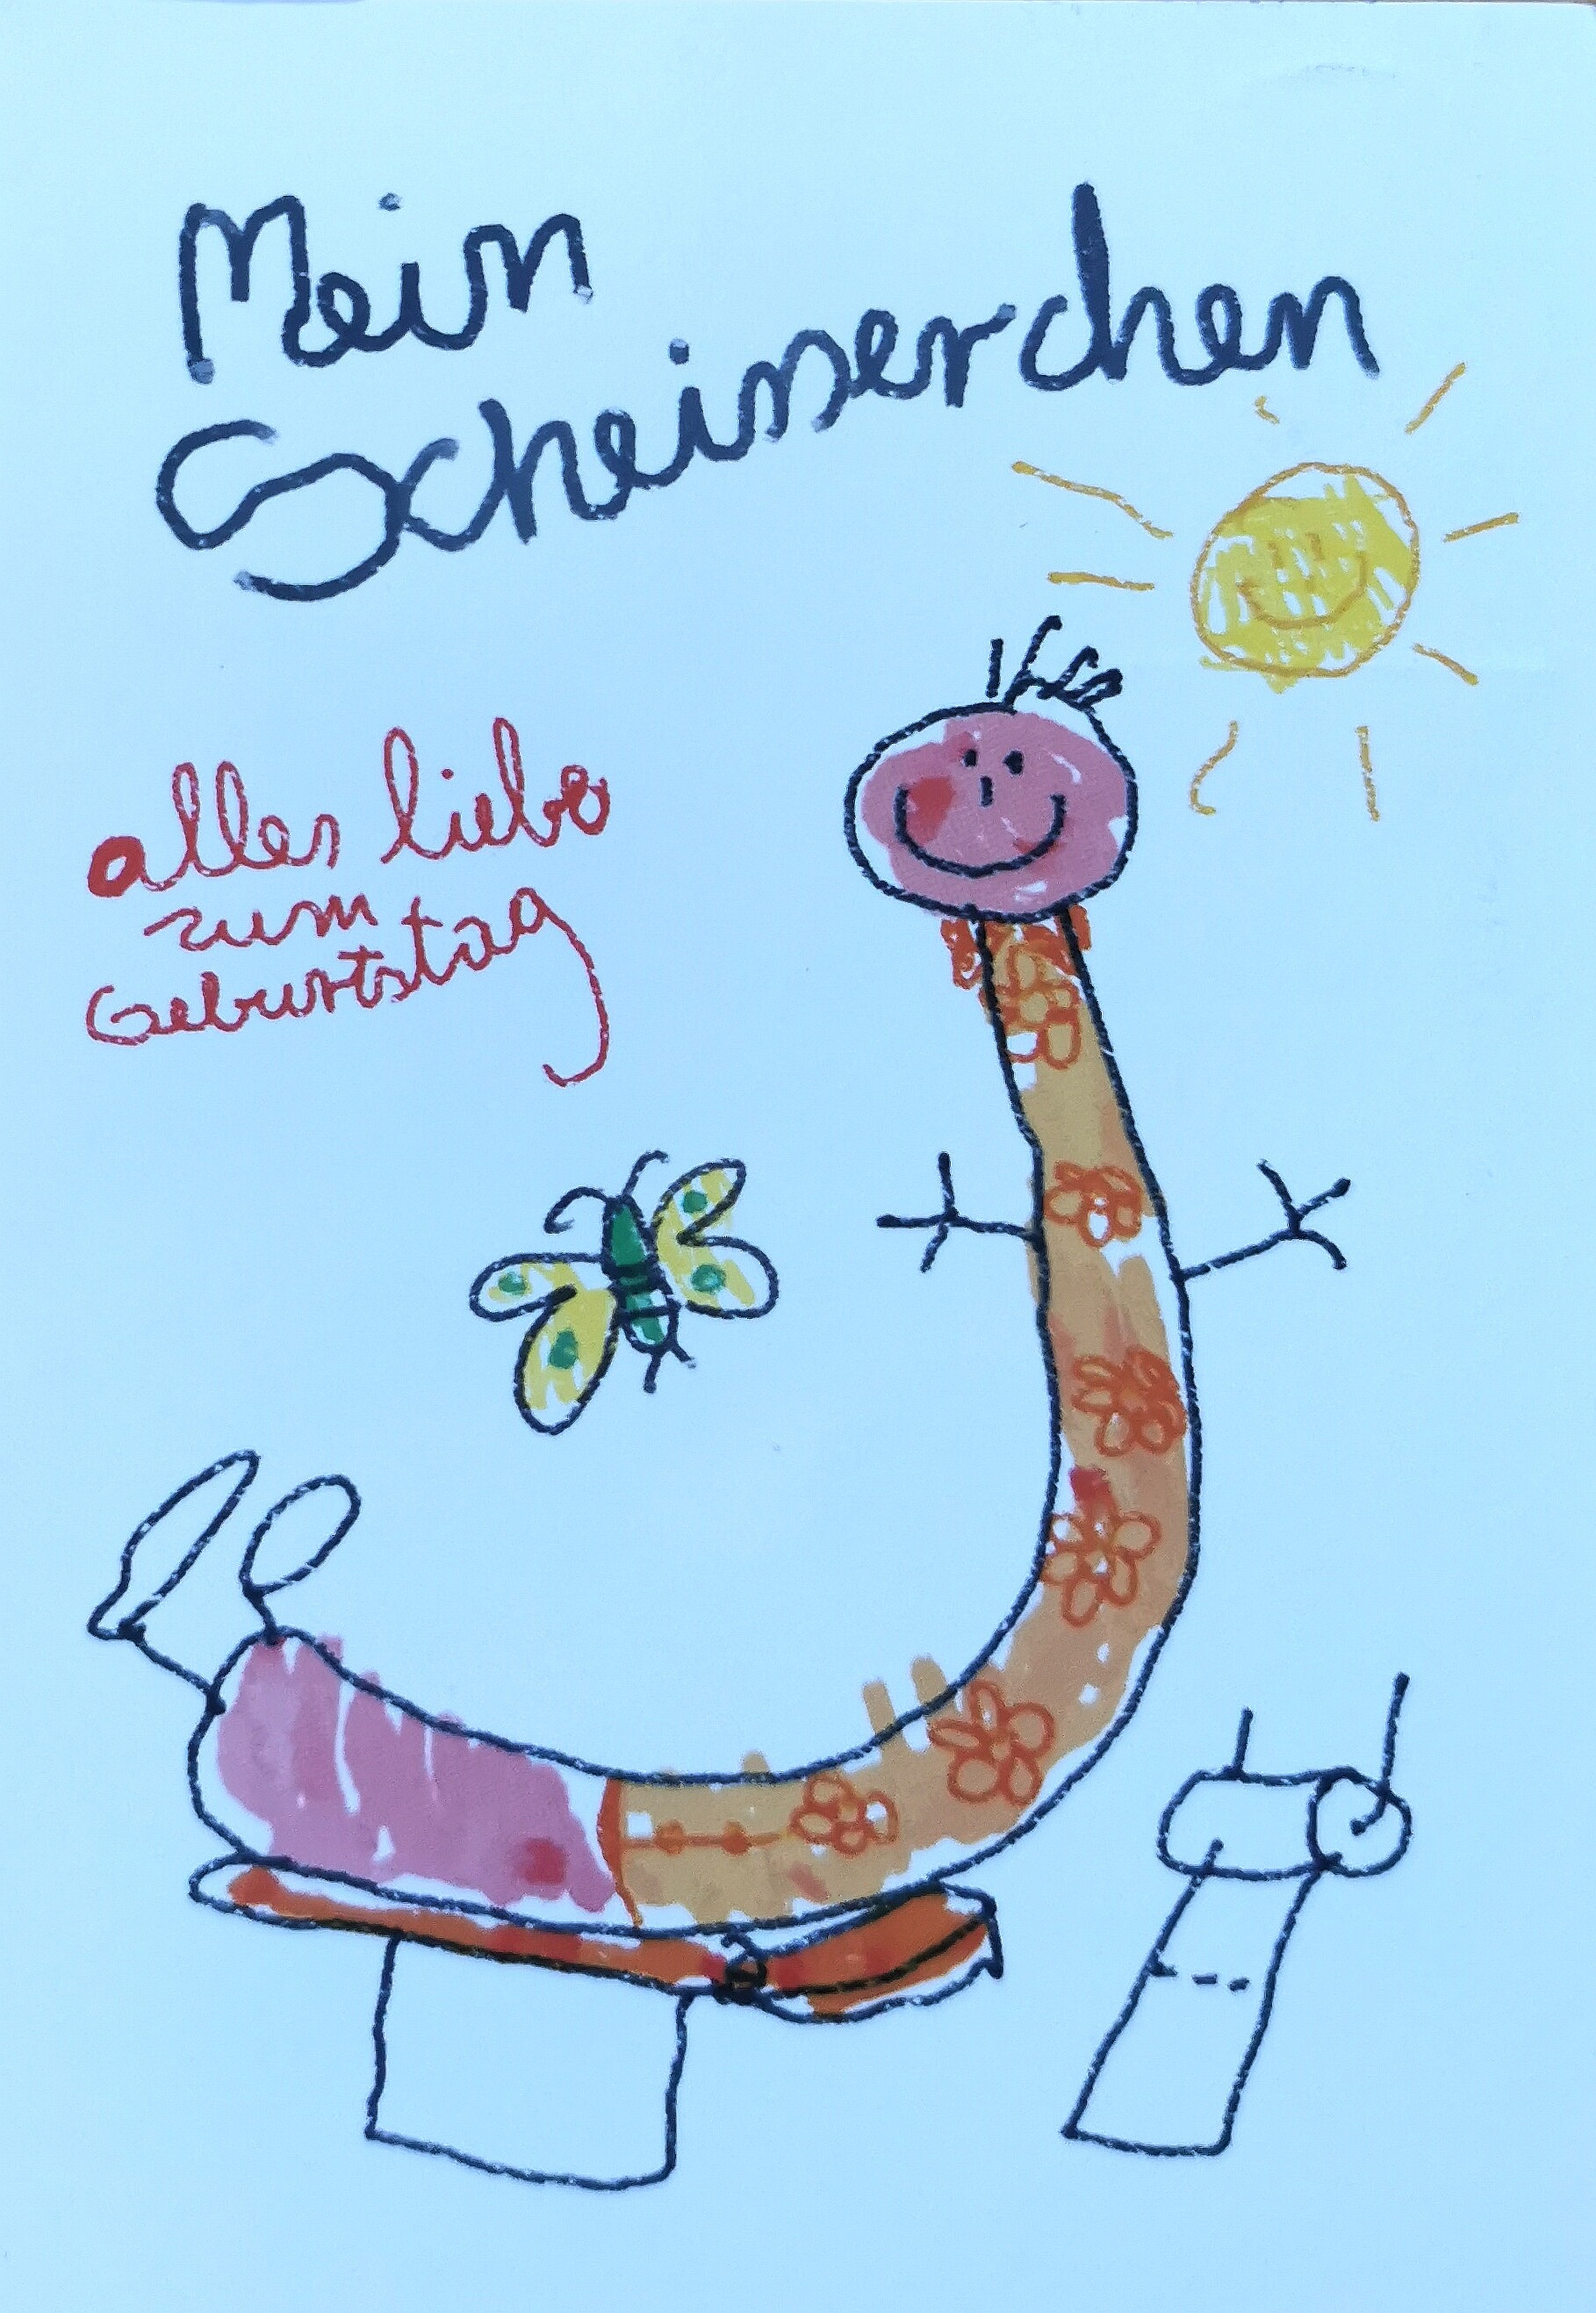 Mein
Scheisserchen
alles liebe
zum
Geburtstag